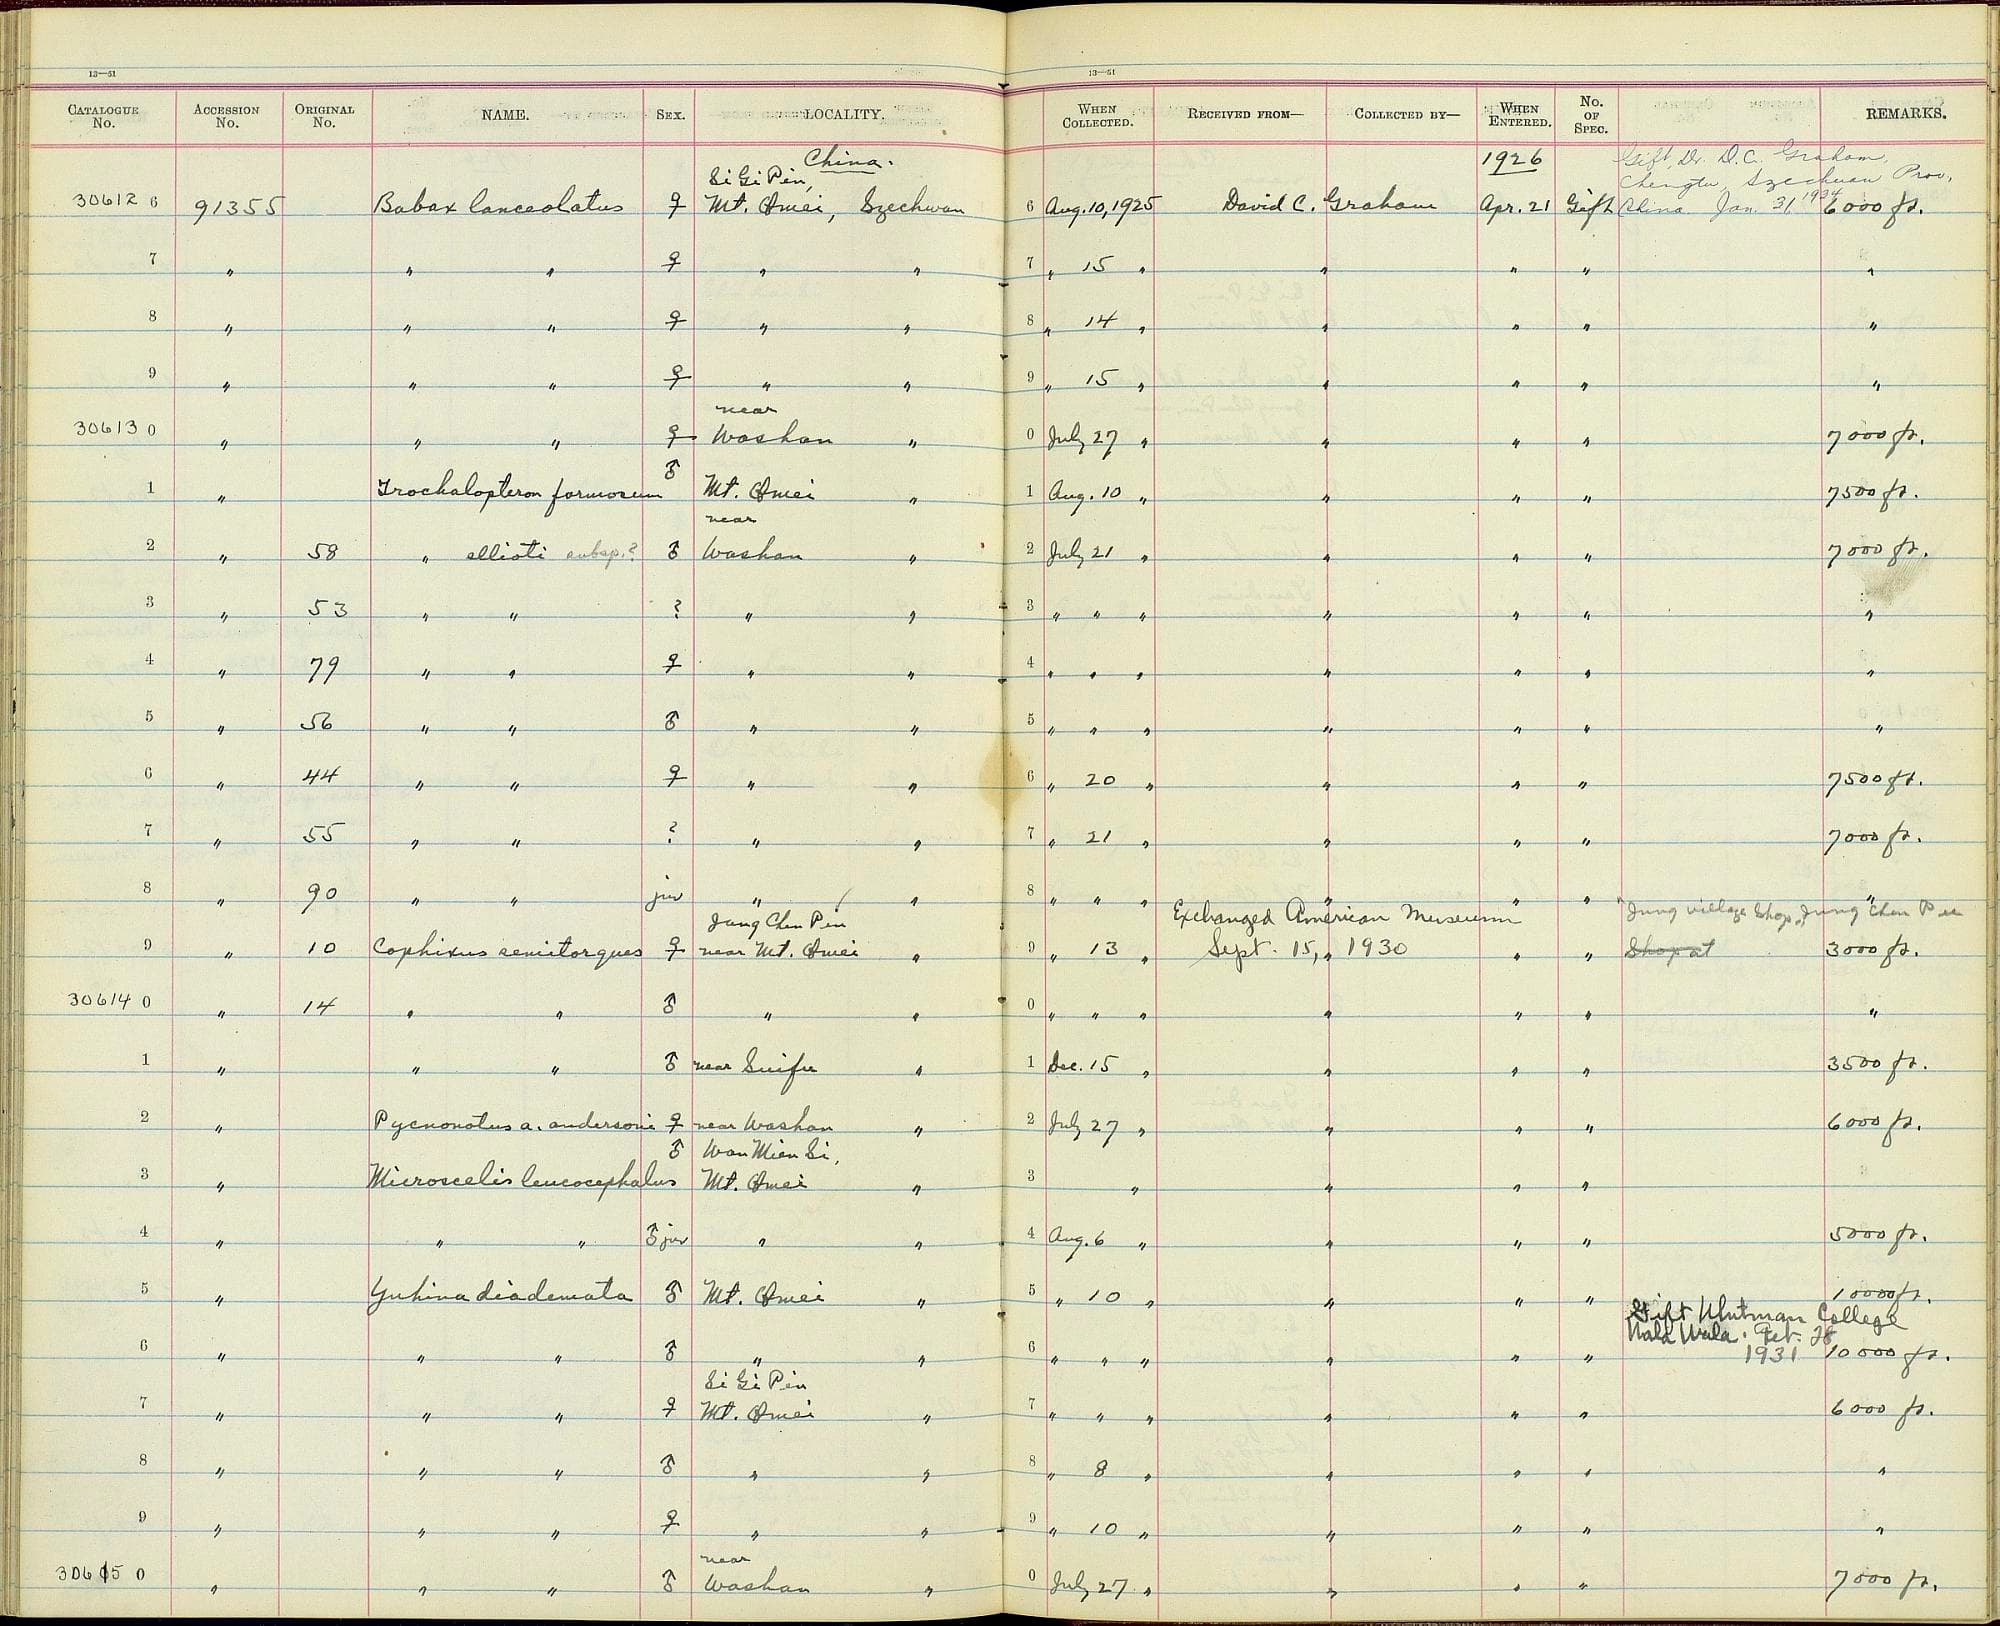 13—51 13—51
CATALOGUE No. ACCESSION No. ORIGINAL No. NAME. SEX. LOCALITY. WHEN COLLECTED. RECEIVED FROM— COLLECTED BY— WHEN ENTERED. No. OF SPEC. REMARKS.
China. 1926 Gift, Dr. D. C. Graham,
Si Gi Pin, Chengtu, Szechuan Prov.,
30612 6 91355 Babax lanceolatus ♀ Mt. Omei, Szechwan 6 Aug. 10, 1925 David C. Graham Apr. 21 Gift China Jan. 31, 1934 6000 ft.
7 " " " ♀ " " 7 " 15 " " " " "
8 " " " ♀ " " 8 " 14 " " " " "
9 " " " ♀ " " 9 " 15 " " " " "
near
30613 0 " " " ♀ Washan " 0 July 27 " " " " 7000 ft.
1 " Trochalopteron formosum ♂ Mt. Omei " 1 Aug. 10 " " " " 7500 ft.
near
2 " 58 " ellioti subsp.? ♂ Washan " 2 July 21 " " " " 7000 ft.
3 " 53 " " ? " " 3 " " " " " " "
4 " 79 " " ♀ " " 4 " " " " " " "
5 " 56 " " ♂ " " 5 " " " " " " "
6 " 44 " " ♀ " " 6 " 20 " " " " 7500 ft.
7 " 55 " " ? " " 7 " 21 " " " " 7000 ft.
8 " 90 " " juv " " 8 " " " " " " "
Jung Chen Pin Exchanged American Museum "Jung village Shop, Jung Chen Pin
9 " 10 Cophixus semitorques ♀ near Mt. Omei " 9 " 13 " Sept. 15, " 1930 " " Shop at 3000 ft.
30614 0 " 14 " " ♂ " " 0 " " " " " " "
1 " " " ♂ near Suifu " 1 Dec. 15 " " " " 3500 ft.
2 " Pycnonotus a. andersoni ♀ near Washan " 2 July 27 " " " " 6000 ft.
♂ Wan Mien Si,
3 " Microscelis leucocephalus Mt. Omei " 3 " " " "
4 " " " ♂ juv " " 4 Aug. 6 " " " " 5000 ft.
5 " Yuhina diademata ♂ Mt. Omei " 5 " 10 " " " " 10000 ft.
Gift Whitman College
Wala Wala. Feb. 28
6 " " " ♂ " " 6 " " " " " " 1931 10000 ft.
Si Gi Pin
7 " " " ♀ Mt. Omei " 7 " " " " " " 6000 ft.
8 " " " ♂ " " 8 " 8 " " " " "
9 " " " ♀ " " 9 " 10 " " " " "
near
30615 0 " " " ♂ Washan " 0 July 27 " " " " 7000 ft.